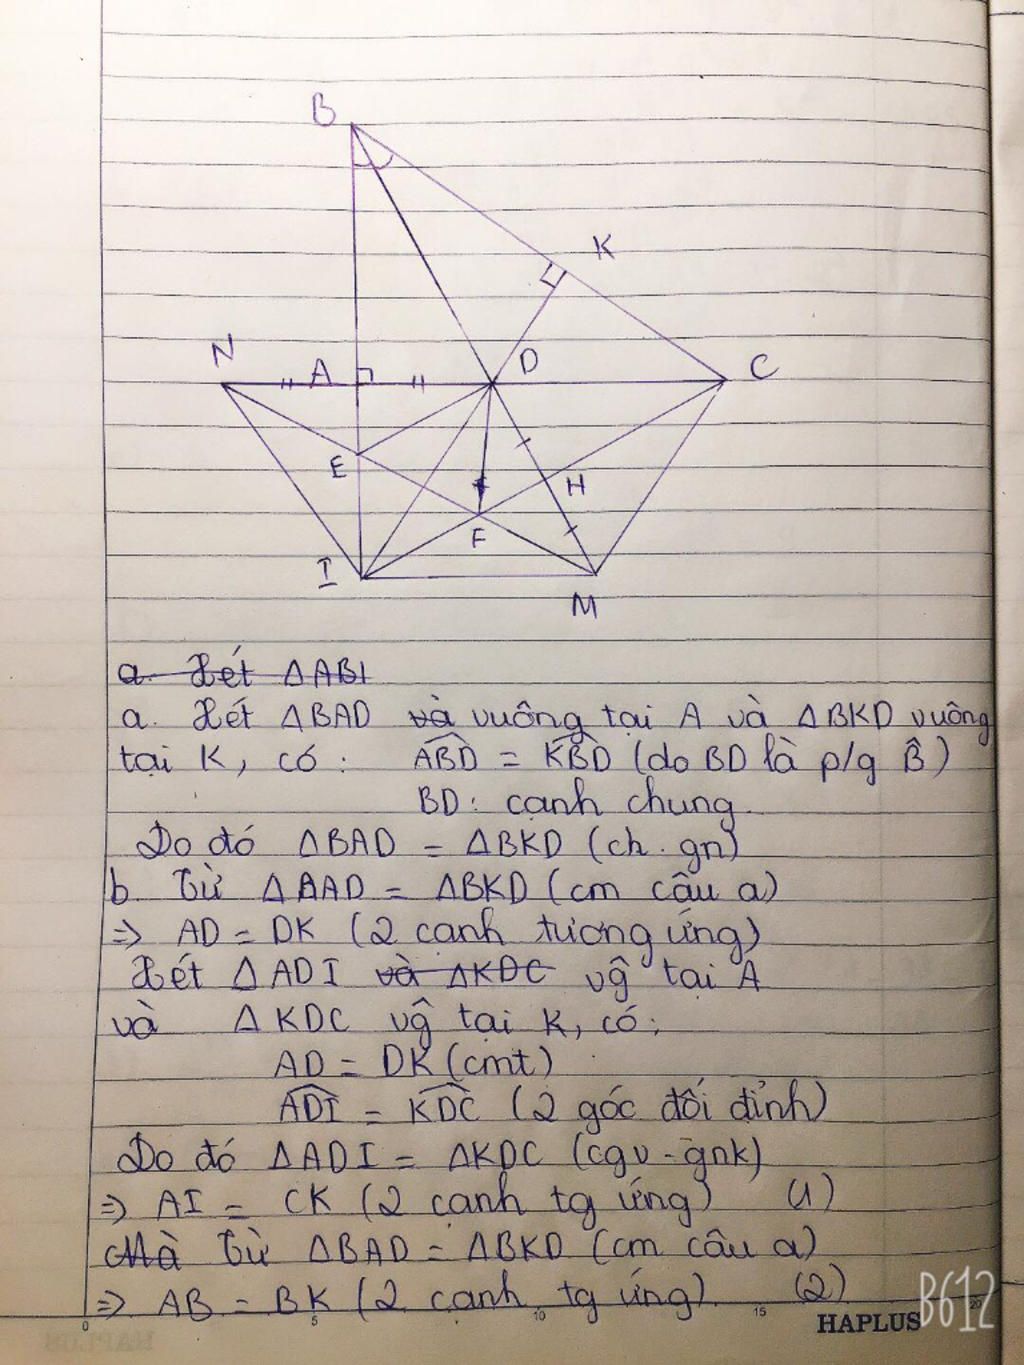 B
K
N
A
D
C
E
H
F
I
M
a. Xét ΔABI
a. Xét ΔBAD và vuông tại A và ΔBKD vuông
tại K, có: ABD^ = KBD^ (do BD là p/g B̂)
BD: cạnh chung.
Do đó ΔBAD = ΔBKD (ch. gn)
b. Từ ΔBAD = ΔBKD (cm câu a)
⇒ AD = DK (2 cạnh tương ứng)
Xét ΔADI và ΔKDC vĝ tại A
và ΔKDC vĝ tại K, có:
AD = DK (cmt)
ADI^ = KDC^ (2 góc đối đỉnh)
Do đó ΔADI = ΔKDC (cgv - gnk)
⇒ AI = CK (2 cạnh tg ứng) (1)
Mà Từ ΔBAD = ΔBKD (cm câu a)
⇒ AB = BK (2 cạnh tg ứng). (2)
0 5 10 15 20
HAPLUS
B612